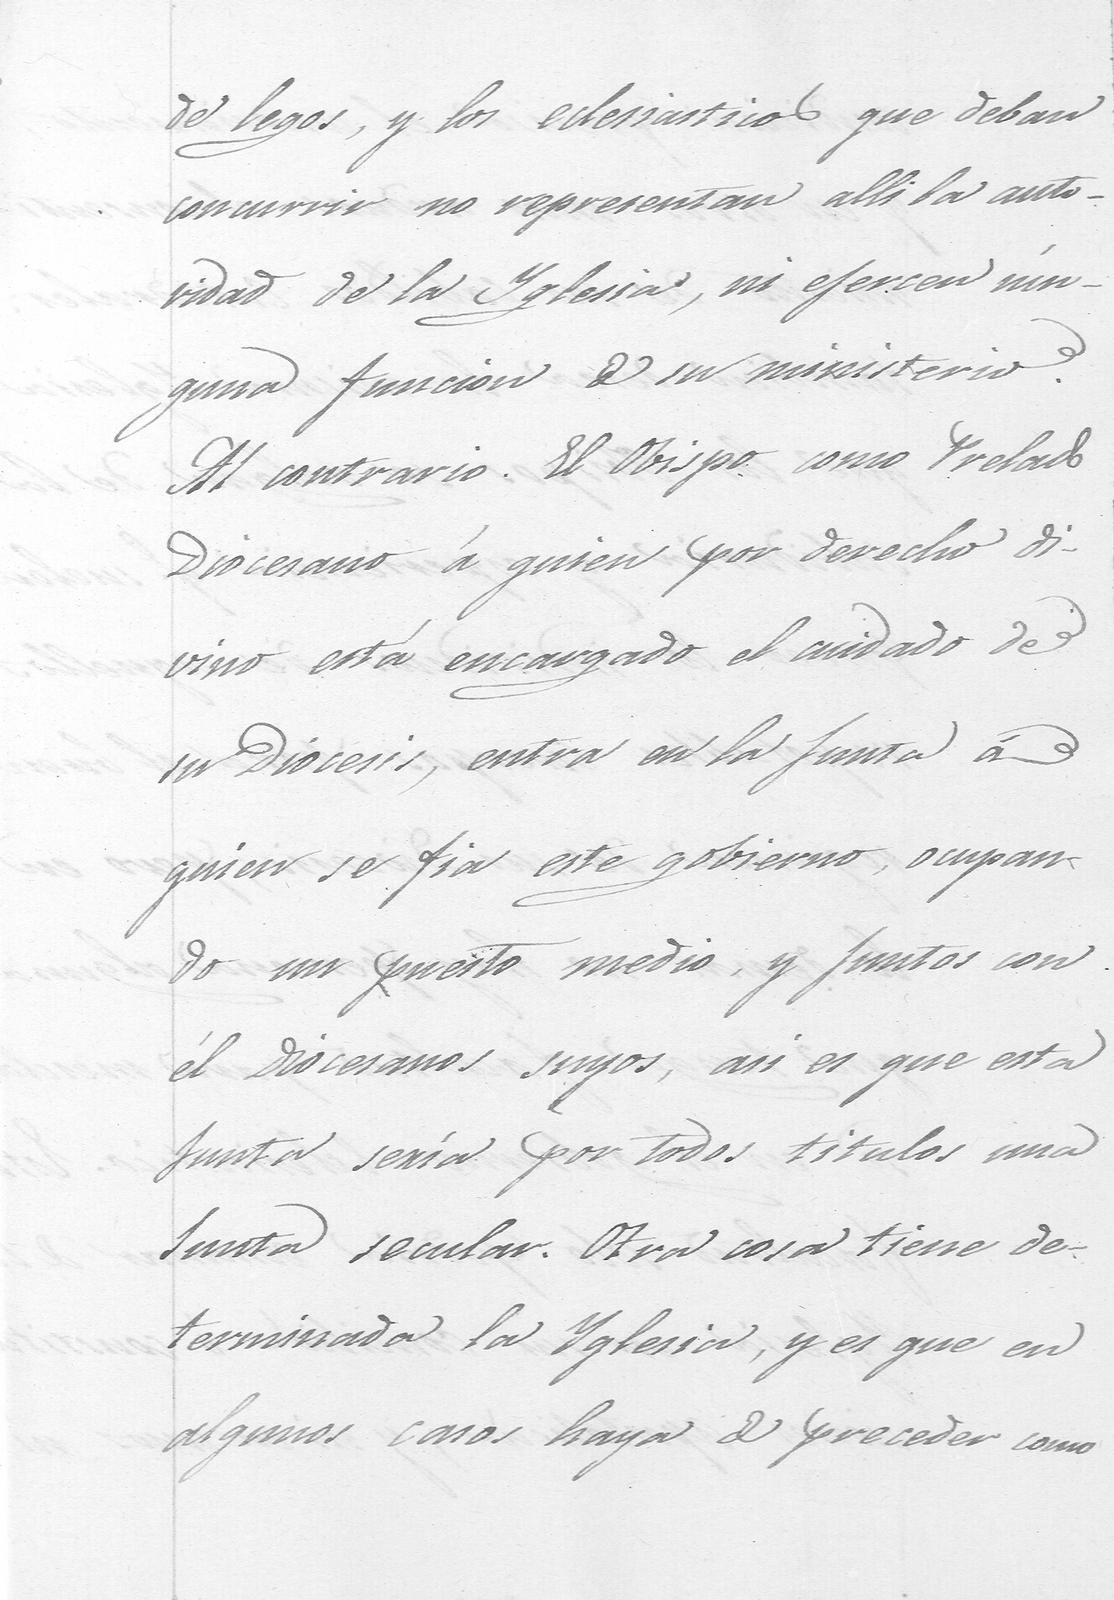 de legos, y los eclesiasticos que deban
concurrir no representan alli la auto-
ridad de la Yglesia, ni ejercen nin-
guna funcion de su ministerio.
Al contrario. El Obispo como Prelado
Diocesano á quien por derecho di-
vino está encargado el cuidado de
su Diócesis, entra en la Junta á
quien se fia este gobierno, ocupan-
do un puesto medio, y juntos con
él Diocesanos suyos, asi es que esta
Junta sería por todos titulos una
Junta secular. Otra cosa tiene de-
terminada la Yglesia, y es que en
algunos casos haya de preceder como